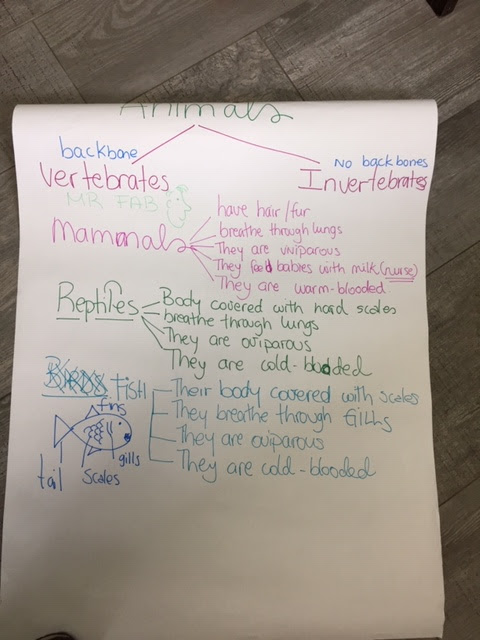 Animals
backbone
No backbones
Vertebrates
Invertebrates
MR FAB
have hair/fur
breathe through lungs
Mammals
They are viviparous
They feed babies with milk (nurse)
They are warm-blooded
Reptiles
Body covered with hard scales
breathe through lungs
They are oviparous
They are cold-blooded
BIRDS FISH
Their body covered with scales
fins
They breathe through Gills
They are oviparous
gills
They are cold-blooded
tail
Scales